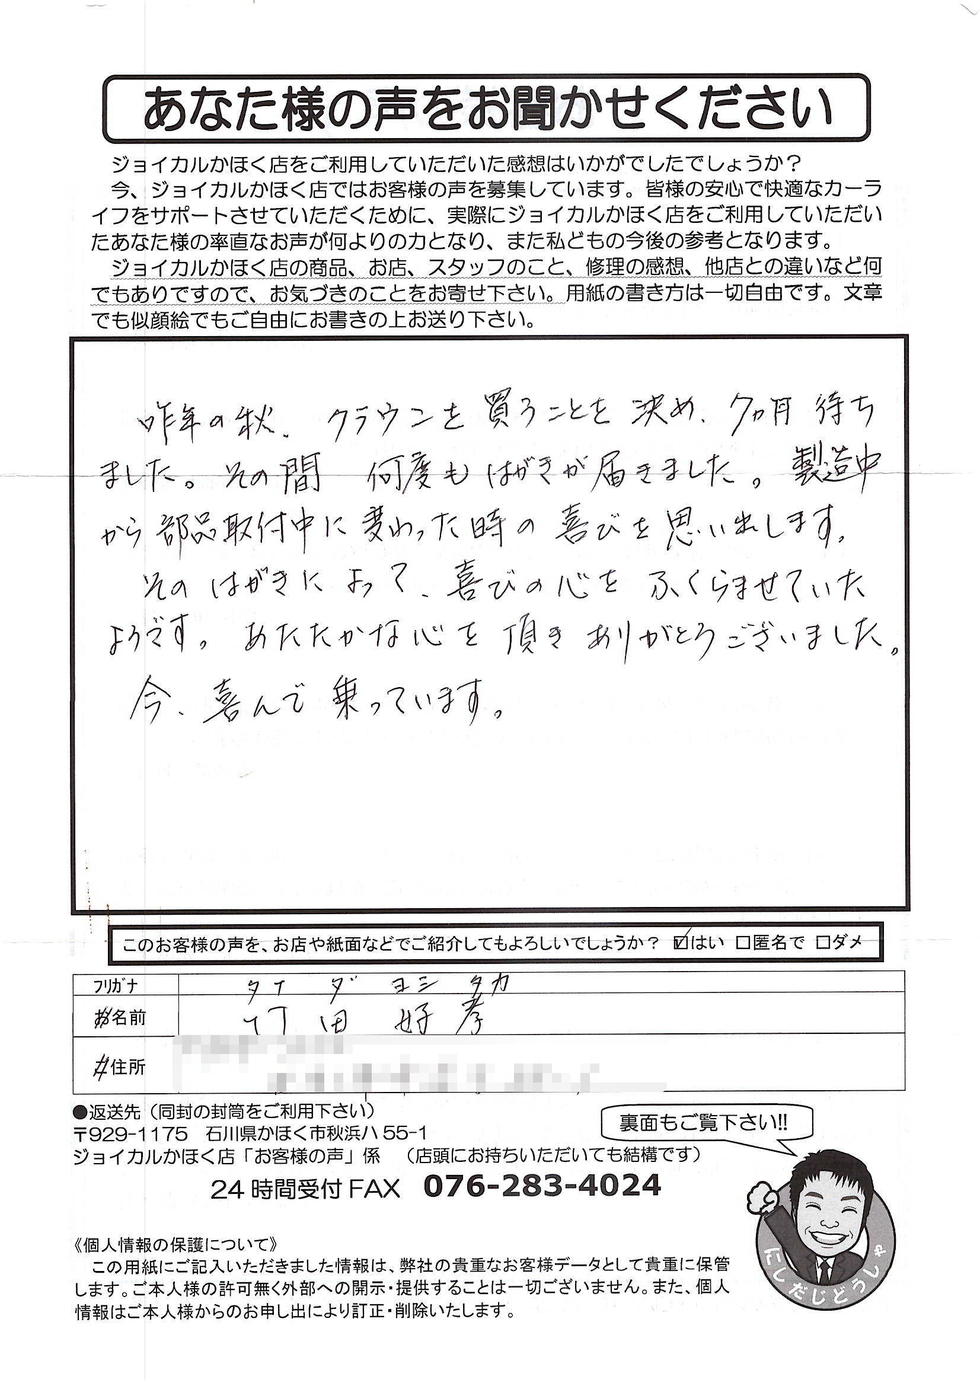 あなた様の声をお聞かせください
ジョイカルかほく店をご利用していただいた感想はいかがでしたでしょうか？
今、ジョイカルかほく店ではお客様の声を募集しています。皆様の安心で快適なカーラ
イフをサポートさせていただくために、実際にジョイカルかほく店をご利用していただい
たあなた様の率直なお声が何よりの力となり、また私どもの今後の参考となります。
ジョイカルかほく店の商品、お店、スタッフのこと、修理の感想、他店との違いなど何
でもありですので、お気づきのことをお寄せ下さい。用紙の書き方は一切自由です。文章
でも似顔絵でもご自由にお書きの上お送り下さい。
昨年の秋、クラウンを買うことを決め、7ヵ月待ち
ました。その間 何度もはがきが届きました。製造中
から部品取付中に変わった時の喜びを思い出します。
そのはがきによって、喜びの心をふくらませていた
ようです。あたたかな心を頂きありがとうございました。
今、喜んで乗っています。
このお客様の声を、お店や紙面などでご紹介してもよろしいでしょうか？ ☑はい □匿名で □ダメ
フリガナ タイダ ヨシタカ
お名前 竹田 好孝
ご住所
●返送先（同封の封筒をご利用下さい）
〒929-1175 石川県かほく市秋浜ハ55-1
ジョイカルかほく店「お客様の声」係 （店頭にお持ちいただいても結構です）
24時間受付FAX 076-283-4024
裏面もご覧下さい!!
にしだじどうしゃ
《個人情報の保護について》
この用紙にご記入いただきました情報は、弊社の貴重なお客様データとして貴重に保管
します。ご本人様の許可無く外部への開示・提供することは一切ございません。また、個人
情報はご本人様からのお申し出により訂正・削除いたします。